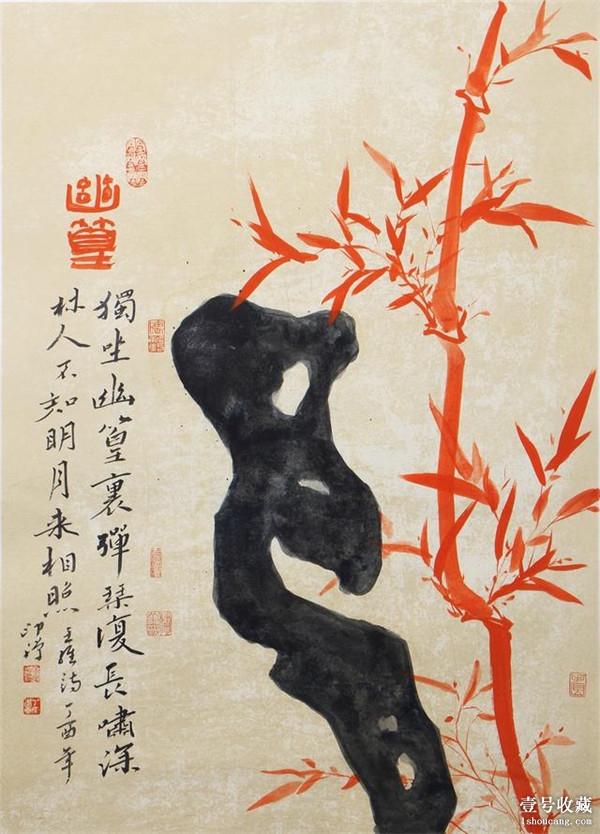 幽
篁
獨坐幽篁裏彈琹復長嘯深
林人不知明月来相照 王維詩 丁酉年
壹号收藏
1shoucang.com